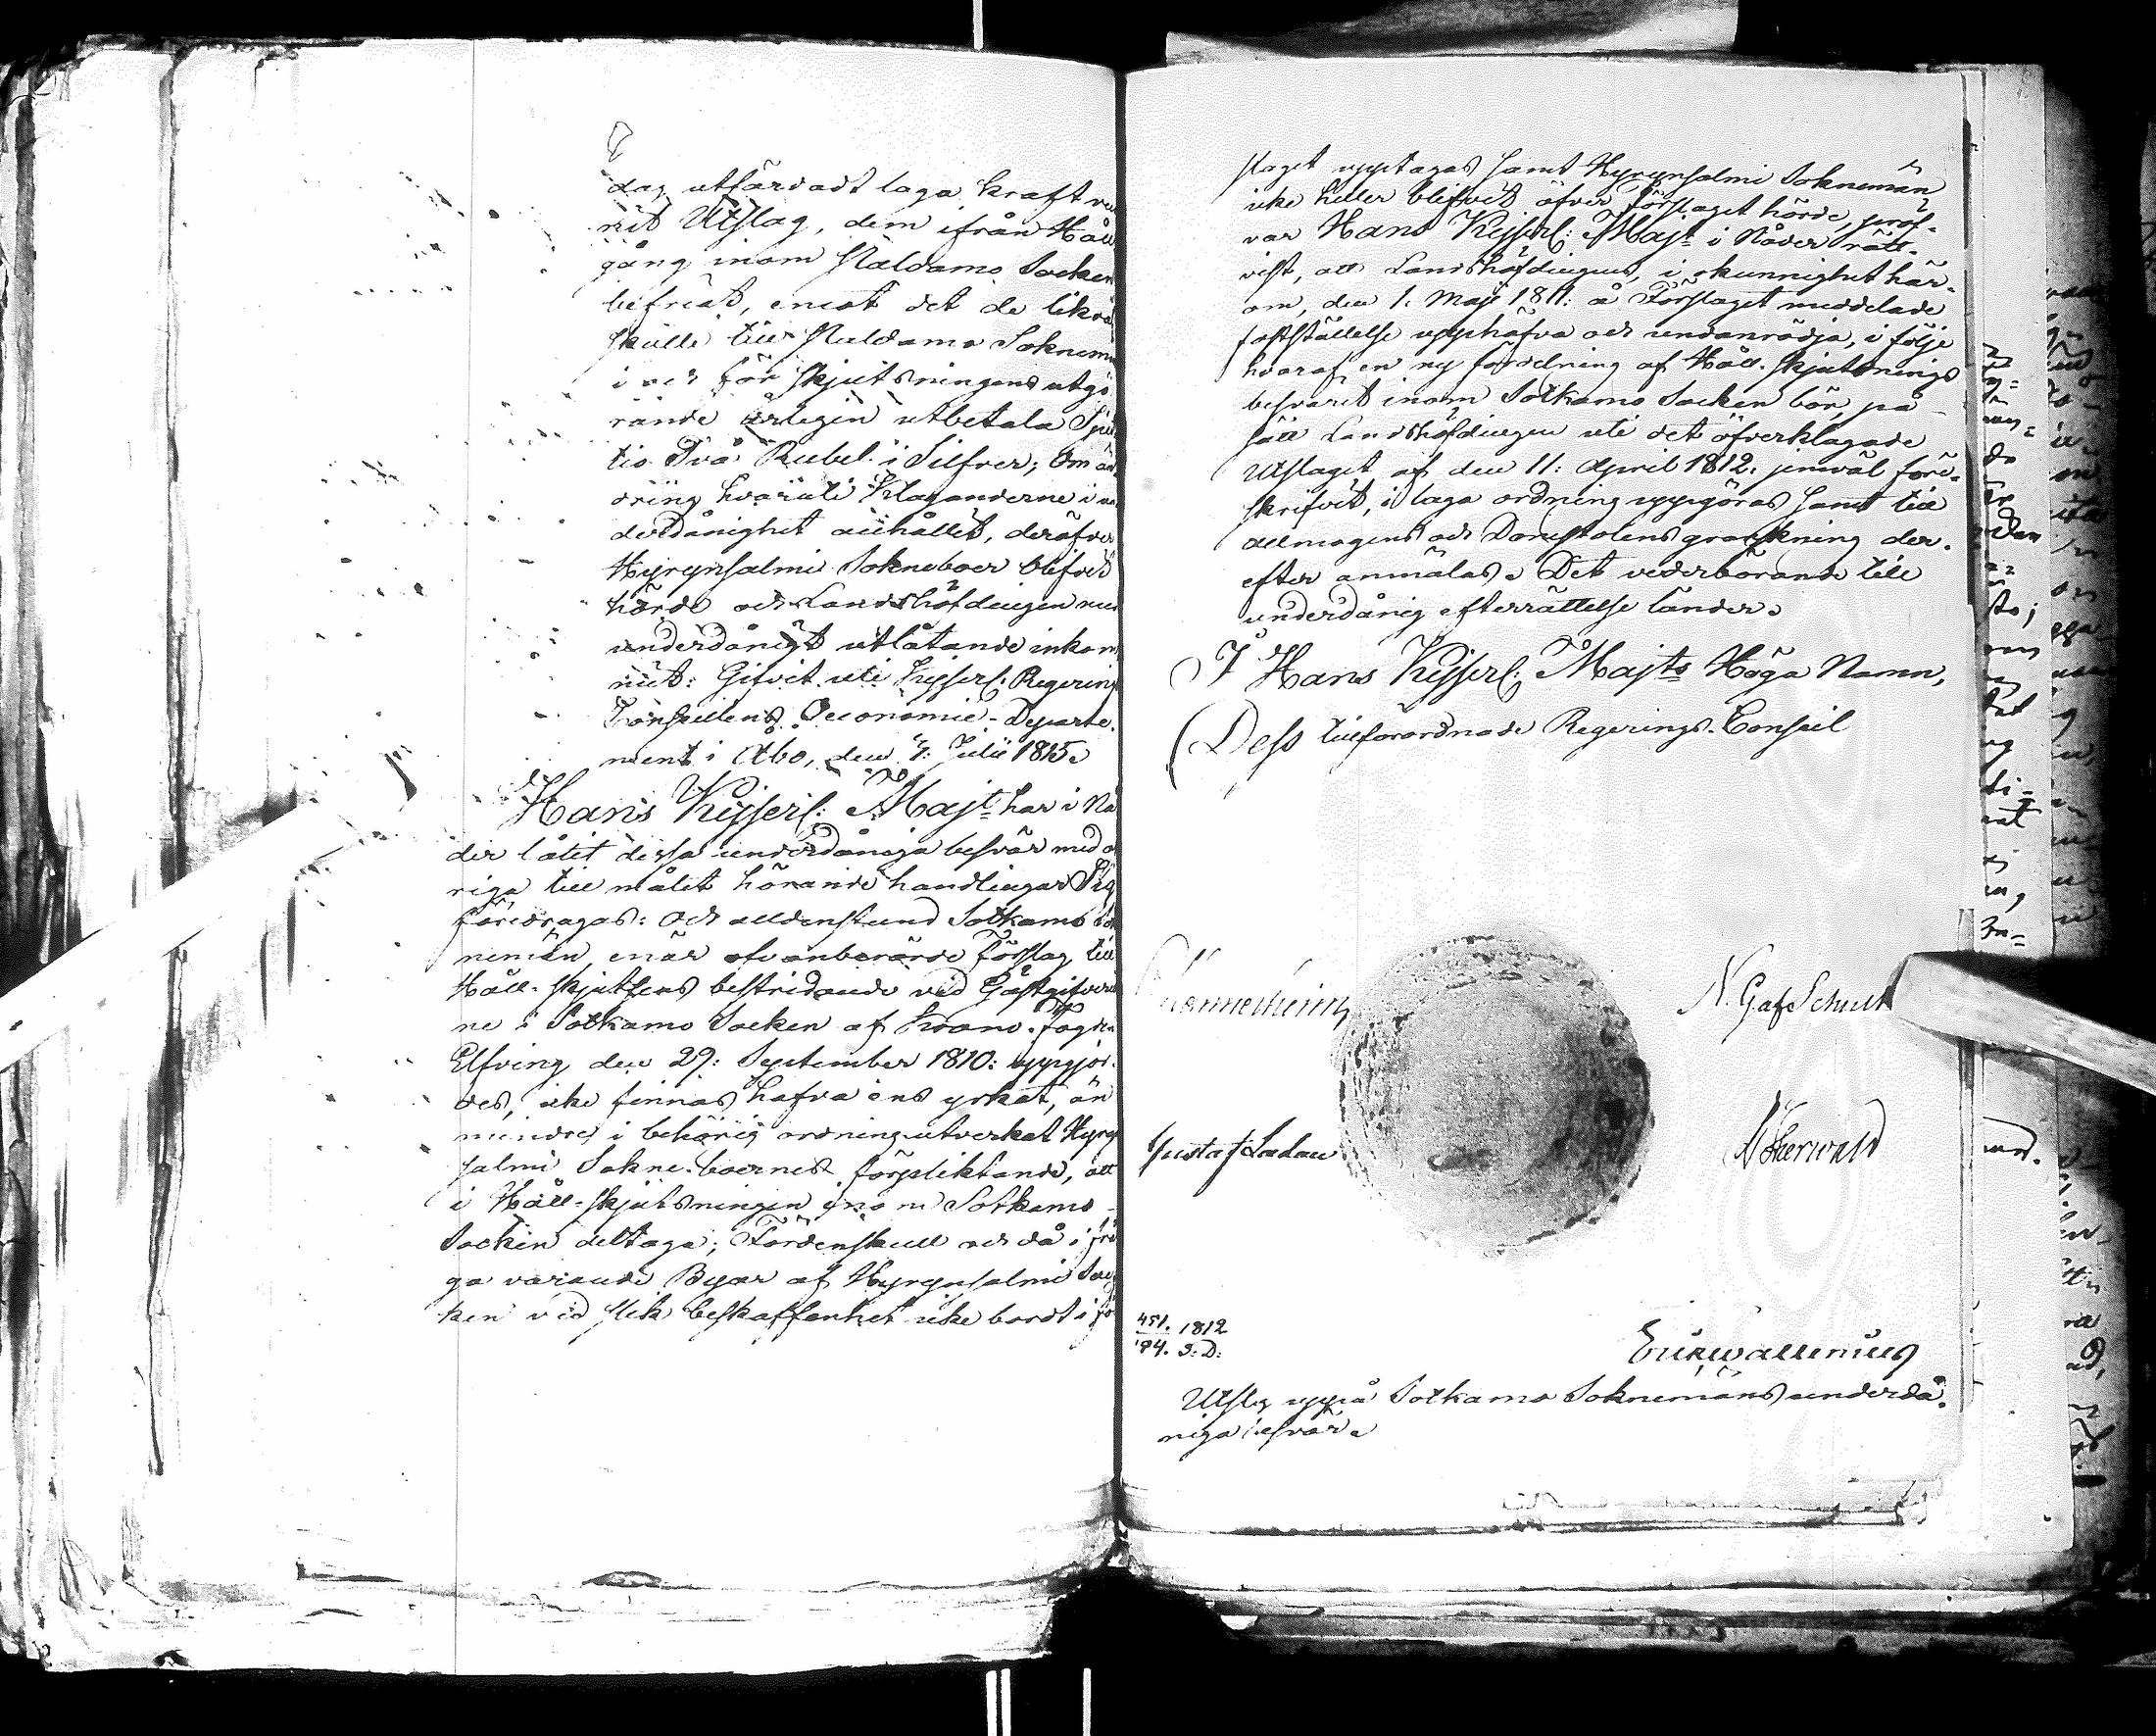 dag utfärdadt laga kraft vun
nit Utslag, dem ifrån Håll
gång inom Paldamo Socken
befriat, emot det de likväl
skulle till Paldamo Soknemän
i och för skjutsningens utgö
rande årligen utbetala Sju
tio Två Rubel i Silfver; Om än
dring hvaruti Klaganderne i un
derdånighet anhållit, deröfver
Hyrynsalmi Sokneboer blifvit
hörde och Landshöfdingen med
underdånigt utlåtande inkom
mit: Gifvit uti Kejserl. Regerings
Conseillens Oeconomie-Departe-
ment i Åbo, den 4: Julii 1815.
Hans Kejserl: Majt har i Nå
der låtit dessa underdåniga besvär med öf
riga till målet hörande handlingar Sig
föredragas: Och alldenstund Sotkamo Sok
nemän, enär ofvanberörde Förslag till
Håll-skjutsens bestridande vid Gästgifverier
ne i Sotkamo Socken af Krono-Fogden
Elfving den 29: September 1810: uppgjor-
des, icke finnas hafva ens yrkat, än
mindre i behörig ordning utverkat Hyryn
salmi Sokne-boernes förpliktande, att
i Håll-skjutsningen inom Sotkamo
Socken deltaga; Fördenskull och då i frå
ga varande Byar af Hyrynsalmi Soc
ken vid slik beskaffenhet icke bordt i för
slaget upptagas samt Hyrynsalmi Soknemän
icke heller blifvit öfver Förslaget hörde, pröf-
var Hans Kejserl: Majt i Nåder rätt-
vist, att Landshöfdingens, i okunnighet här-
om, den 1. Maji 1811: å Förslaget meddelade
fastställelse upphäfva och undanrödja, i följe
hvaraf en ny fördelning af Håll-skjutsnings
besväret inom Sotkamo Socken bör, på
sätt Landshöfdingen uti det öfverklagade
Utslaget af den 11: April 1812. jemväl före-
skrifvit, i laga ordning uppgöras samt till
allmogens och Domstolens granskning der-
efter anmälas. Det vederbörande till
underdånig efterrättelse länder.
I Hans Kejserl: Majts Höga Namn,
Dess tillförordnade Regerings-Conseil
Mannerheim
N. G. af Schult
Gustaf Ladau
Eric Wallenius
451. 1812
194. S. D:
Utslag uppå Sotkamo Soknemäns underdå-
niga besvär.